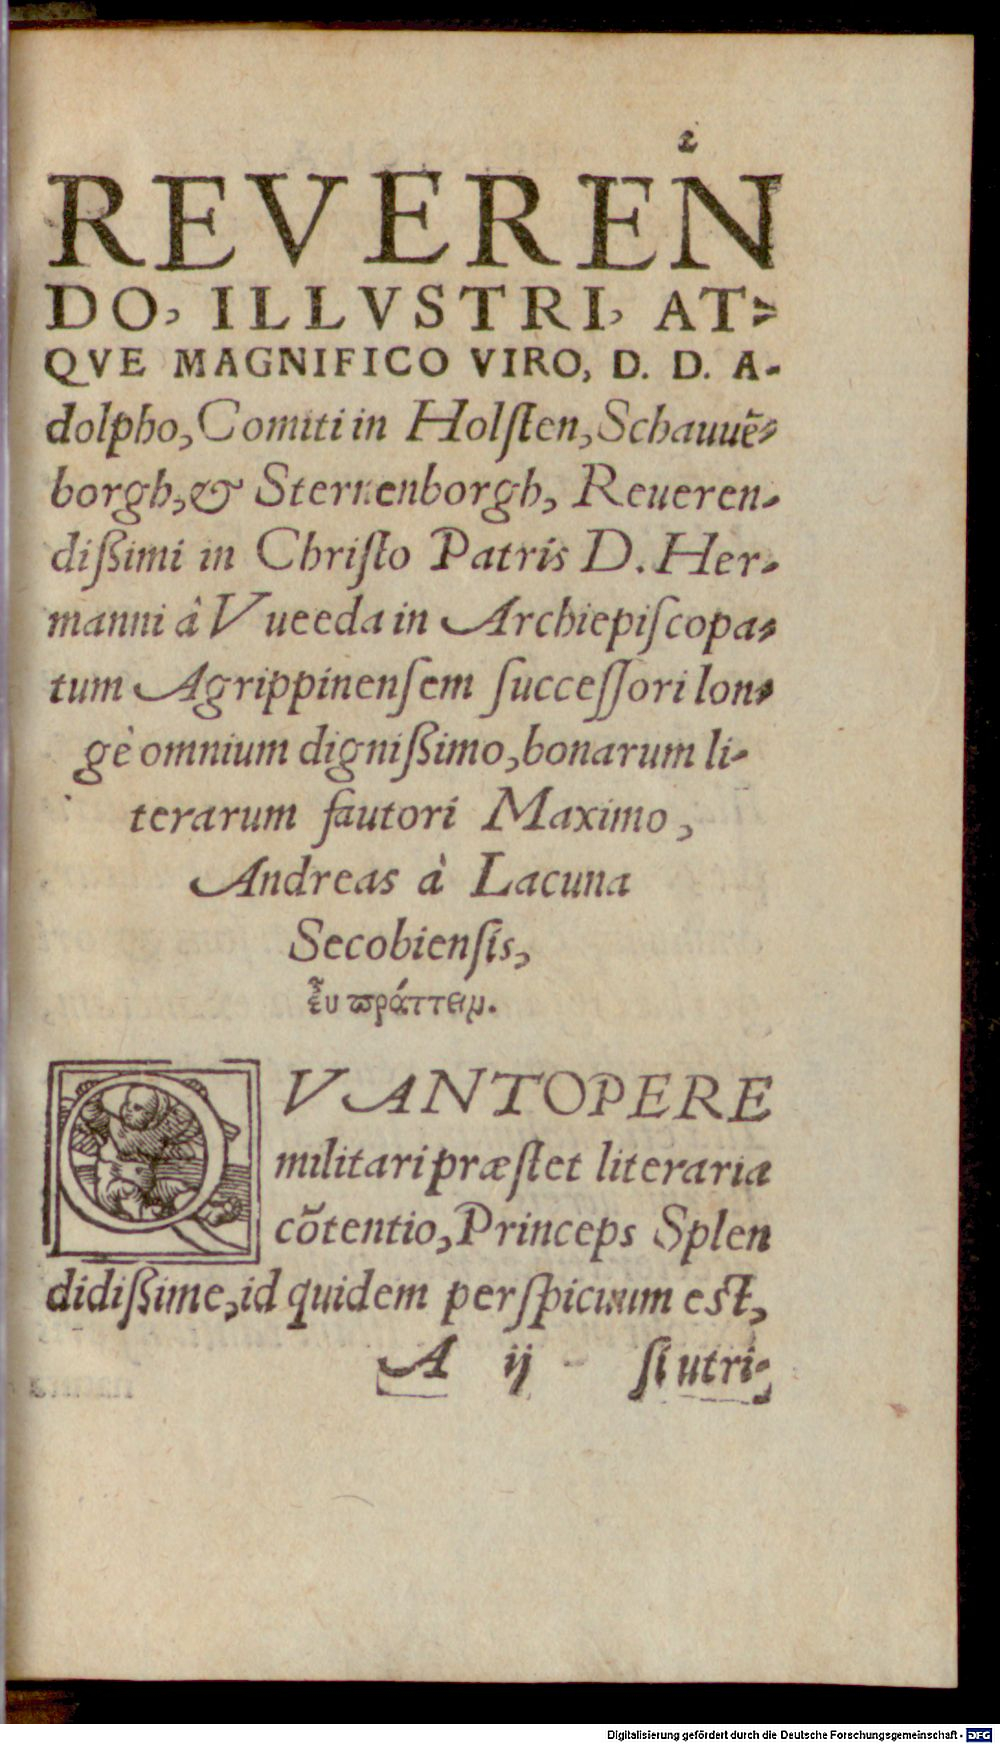 REVEREN
DO, ILLVSTRI, AT-
QVE MAGNIFICO VIRO, D. D. A-
dolpho, Comiti in Holſten, Schauuē-
borgh, & Sternenborgh, Reueren-
diſſimi in Chriſto Patris D. Her-
manni â Vueeda in Archiepiſcopa-
tum Agrippinenſem ſucceſſori lon-
gè omnium digniſſimo, bonarum li-
terarum fautori Maximo,
Andreas à Lacuna
Secobienſis,
἖υ ϖράττειν.
QVANTOPERE
militari præſtet literaria
cõtentio, Princeps Splen
didiſſime, id quidem perſpicuum eſt,
A ij ſi utri-
Digitalisierung gefördert durch die Deutsche Forschungsgemeinschaft - DFG